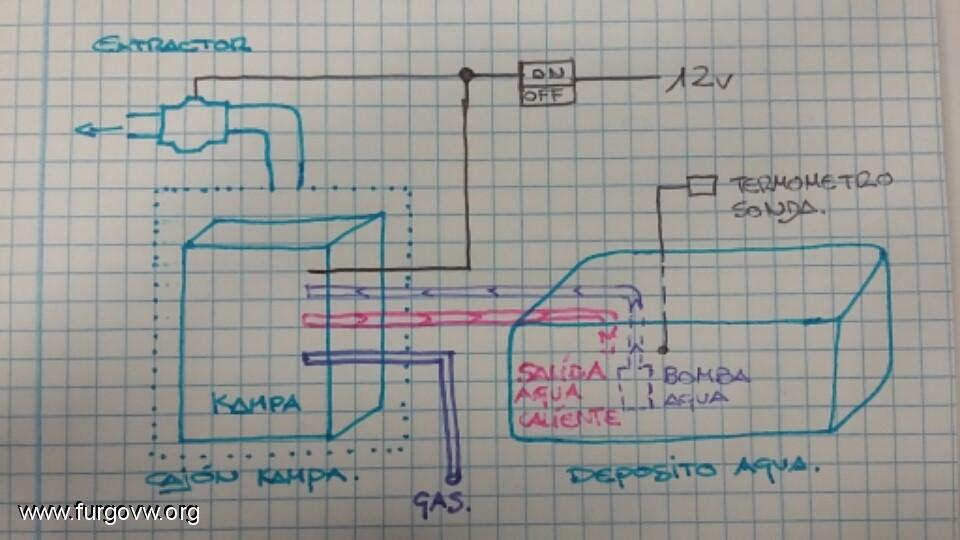 EXTRACTOR
ON
OFF
12V
TERMOMETRO
SONDA.
SALÍDA
AGUA
CALIENTE
BOMBA
AGUA
KAMPA
CAJÓN KAMPA.
DEPOSITO AGUA.
GAS.
www.furgovw.org